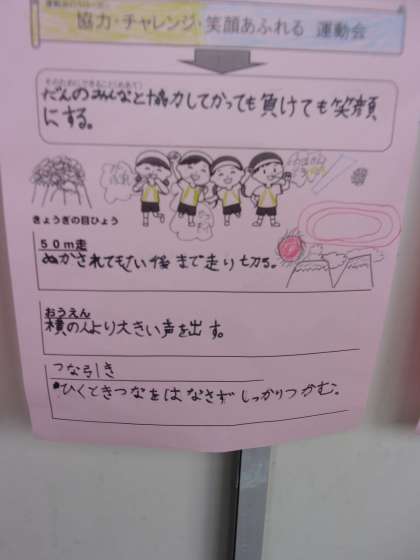 運動会のスローガン
協力・チャレンジ・笑顔あふれる 運動会
そのためにできること(めあて)
だんのみんなと協力してかっても負けても笑顔
にする。
きょうぎの目ひょう
50m走
ぬかされてもさい後まで走り切る。
おうえん
横の人より大きい声を出す。
つな引き
ひくときつなをはなさずしっかりつかむ。